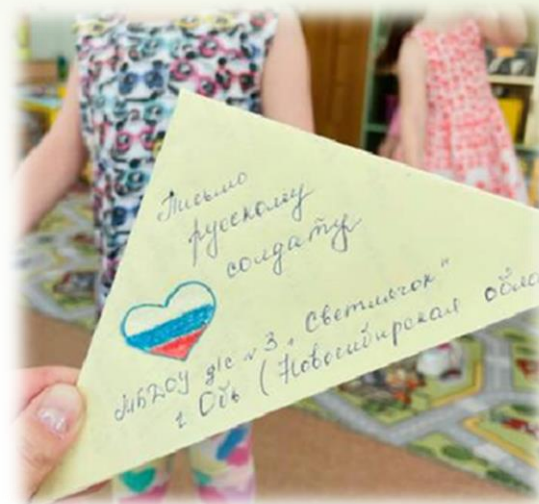 Письмо
русскому
солдату
МБДОУ д/с № 3 „Светлячок"
г. Обь (Новосибирская обла